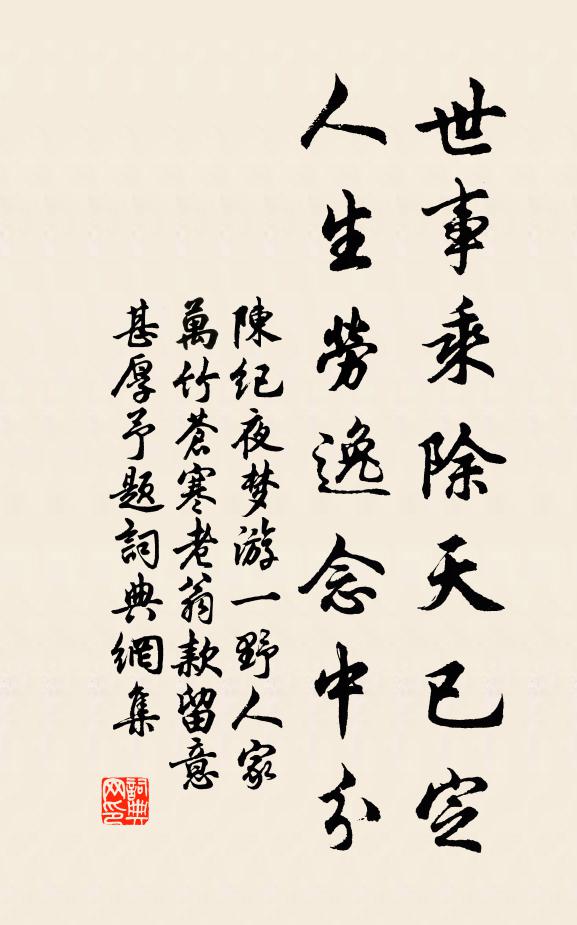 世事乘除天已定
人生勞逸念中分
陳紀夜梦游一野人家
萬竹蒼寒老翁款留意
甚厚予題詞典網集
詞典网印